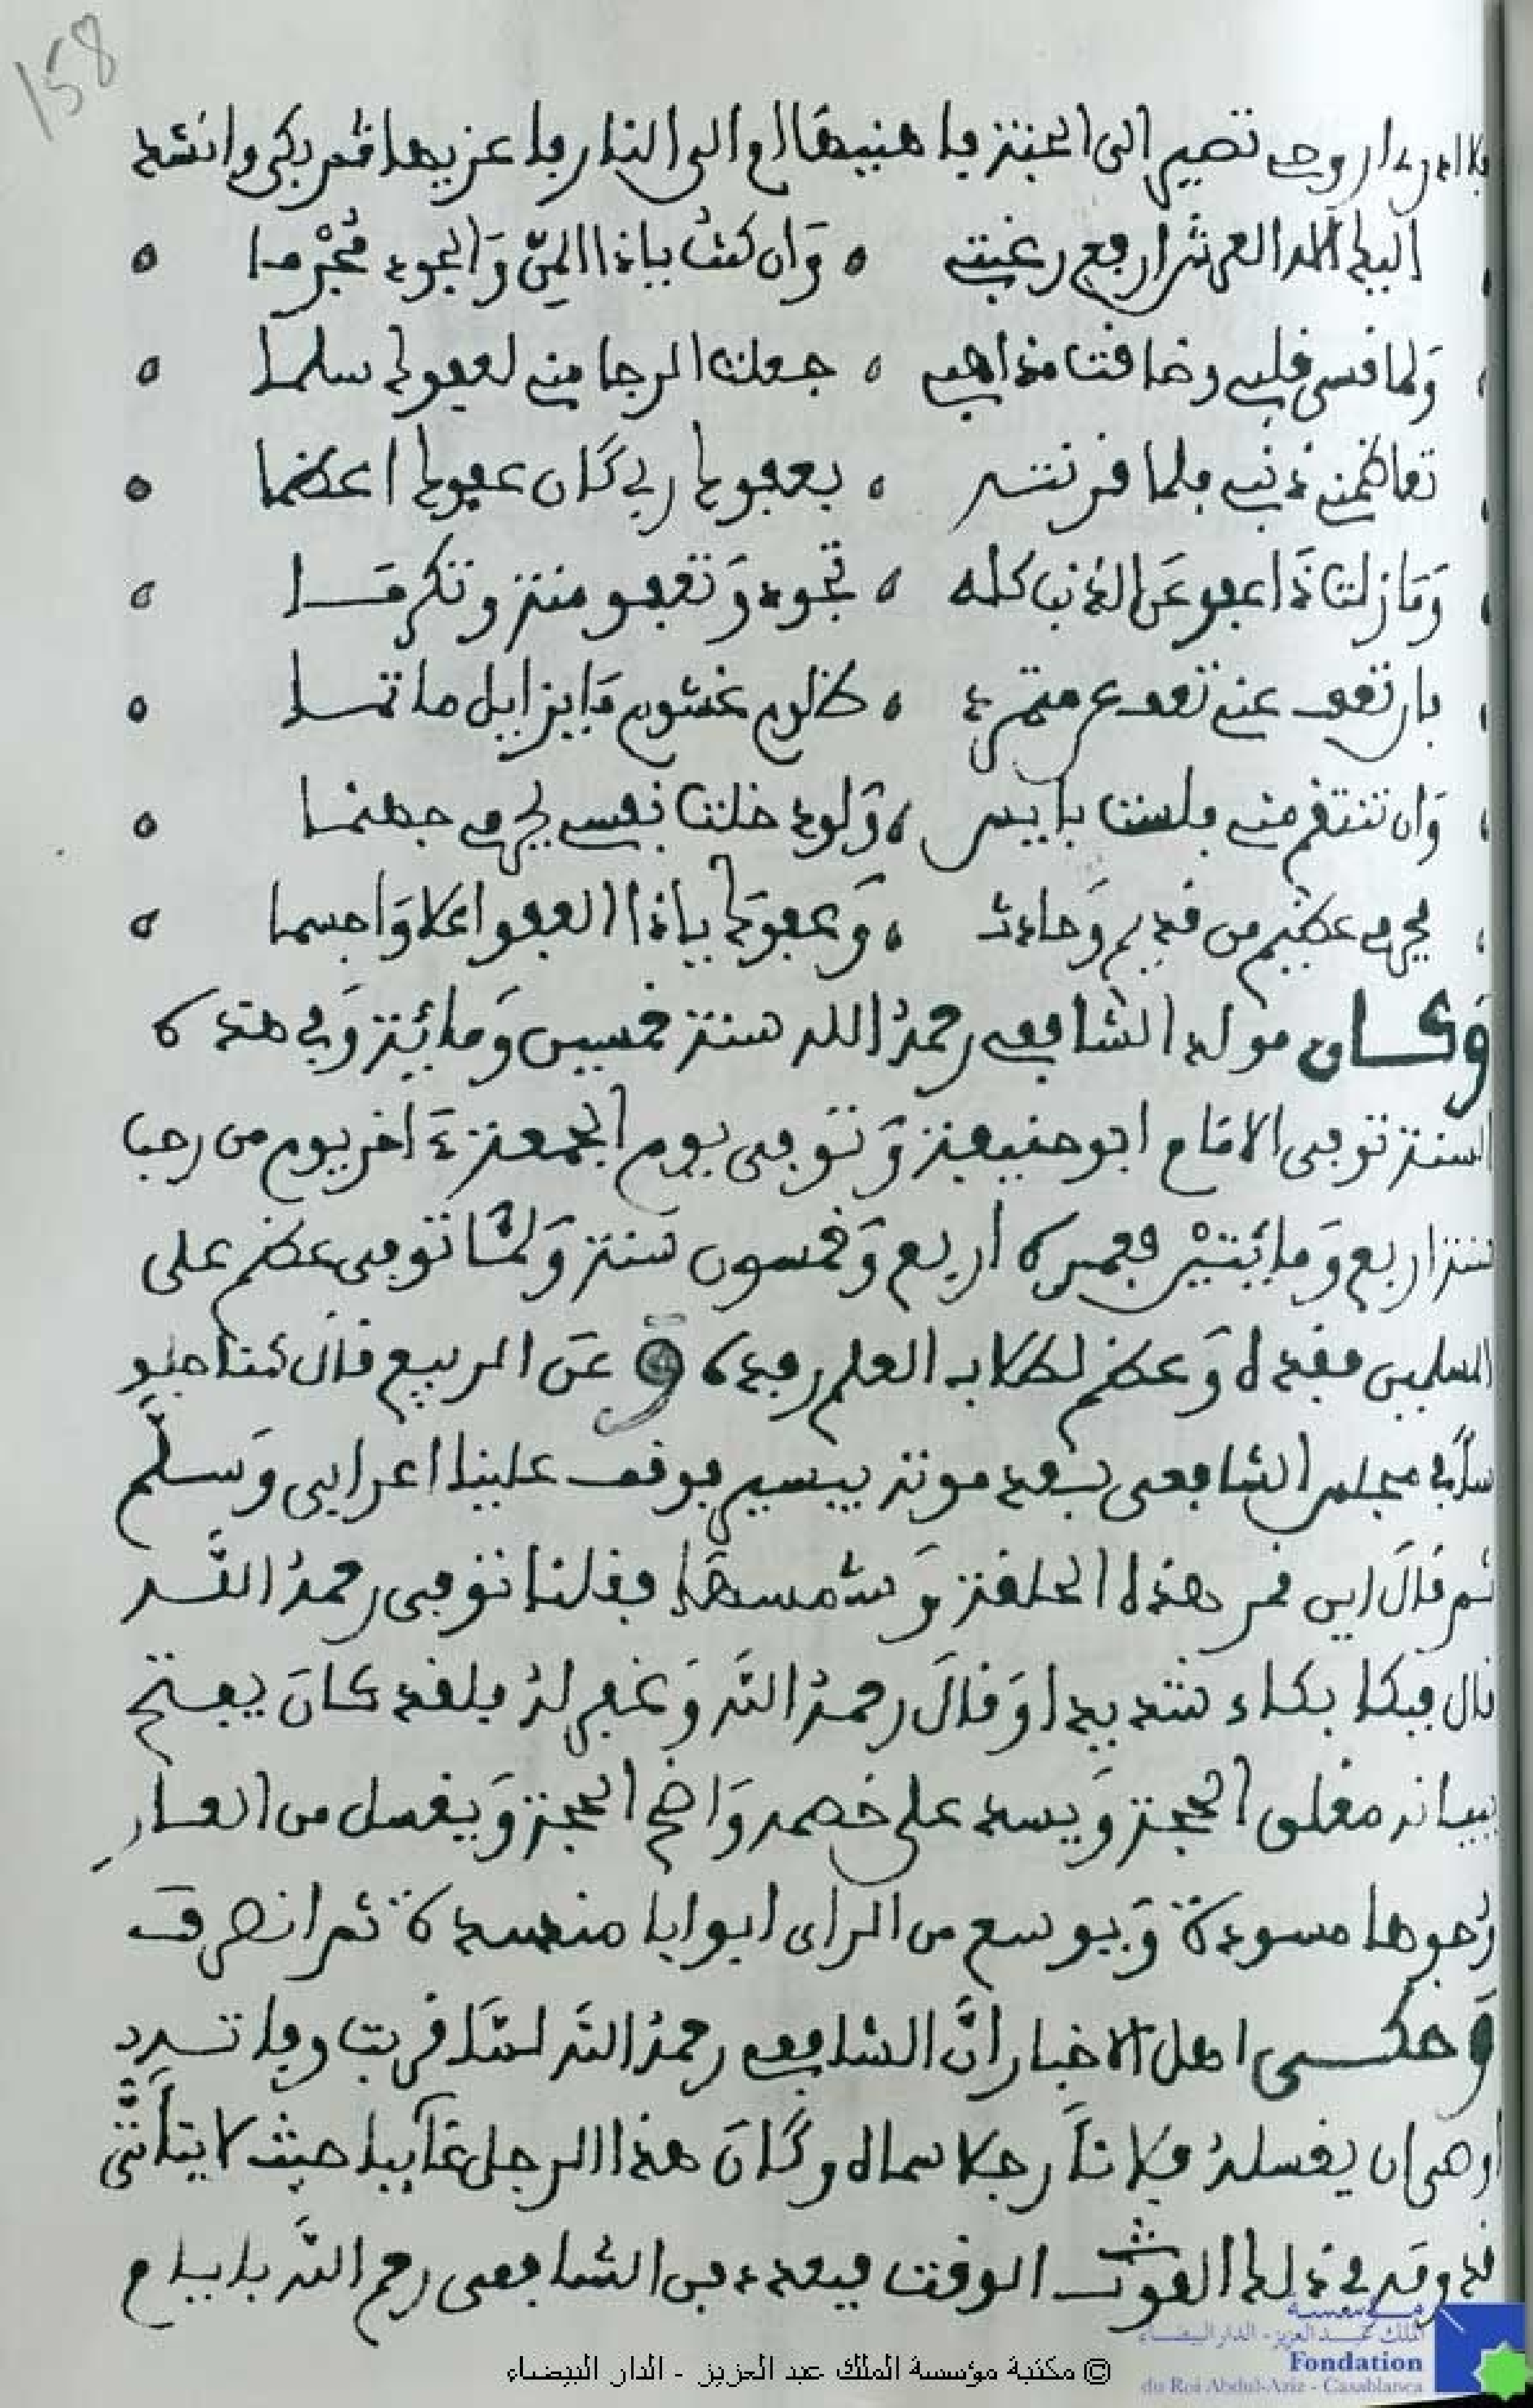 158
فلا ادري اروحي تصير الى الجنة فاهنيها او الى النار فاعزيها ثم بكى وانشد
اليك اله العرش ارفع رغبتي ه وَان كنتُ ياذا المنّ وَالجود مُجْرما ه
وَلما قسى قلبي وضاقت مذاهبي ه جعلت الرجا مني لعفوك سلما ه
تعاظمني ذنبي فلما قرنته ه بعفوك ربي كَان عفوك اعظما ه
وَمَا زلت ذَا عفو عَن الذنب كله ه تجود وَتعفو منة وتكرمَا ه
فان تعف عني تعف عن متمرد ه ظلوم غشوم مَا يزايل ماتما ه
وَان تنتقم مني فلست بآيس ه وَلو دخلت نفسي بجرمي جهنما ه
بجرمي عظيم من قديم وَحادث ه وَعفوَك ياذا العفو اعلا وَاجسما ه
وَكان مولد الشافعي رحمهُ الله سنة خمسين وَمائة وَفي هذه
السنة توفى الامَام ابو حنيفة وَتوفى يوم الجمعة ءَاخر يوم من رجب
سنة اربع وَمائتيْن فعمره اربع وَخمسون سَنة وَلمَّا توفى عظم على
المسلمين فقده وَعظم لطلابه العلم رفده وَ عَن الربيع قال كنا جلو
ساً في مجلس الشافعى بعد موته بيسير فوقف علينا اعرابى وَسلَّم
ثم قالَ اين قمر هذه الحلقة وَشمسهَا فقلنا توفى رحمهُ اللَّه
قال فبكا بكاء شديدا وَقالَ رحمهُ اللَّه وَغفر لهُ فلقد كانَ يفتح
ببيانه مغلق الحجة وَيسد على خصمه وَاضح المحجة وَيغسل من العار
وُجوها مسودة وَيوسع من الراى ابوابا منسدة ثم انصرف
وَحكى اهل الاخبار انَّ الشافعي رحمهُ اللَّه لمَّا قربت وفاته
اوصى ان يغسلهُ فلاناً رجلا سماه وكَانَ هذا الرجل غَآيبا حيث لا يتأتَّى
قدومه في ذلك الوقت فبعد دفن الشافعى رحم اللَّه بايام
مؤسسة
الملك عبد العزيز - الدار البيضاء
Fondation
du Roi Abdul-Aziz - Casablanca
© مكتبة مؤسسة الملك عبد العزيز - الدار البيضاء